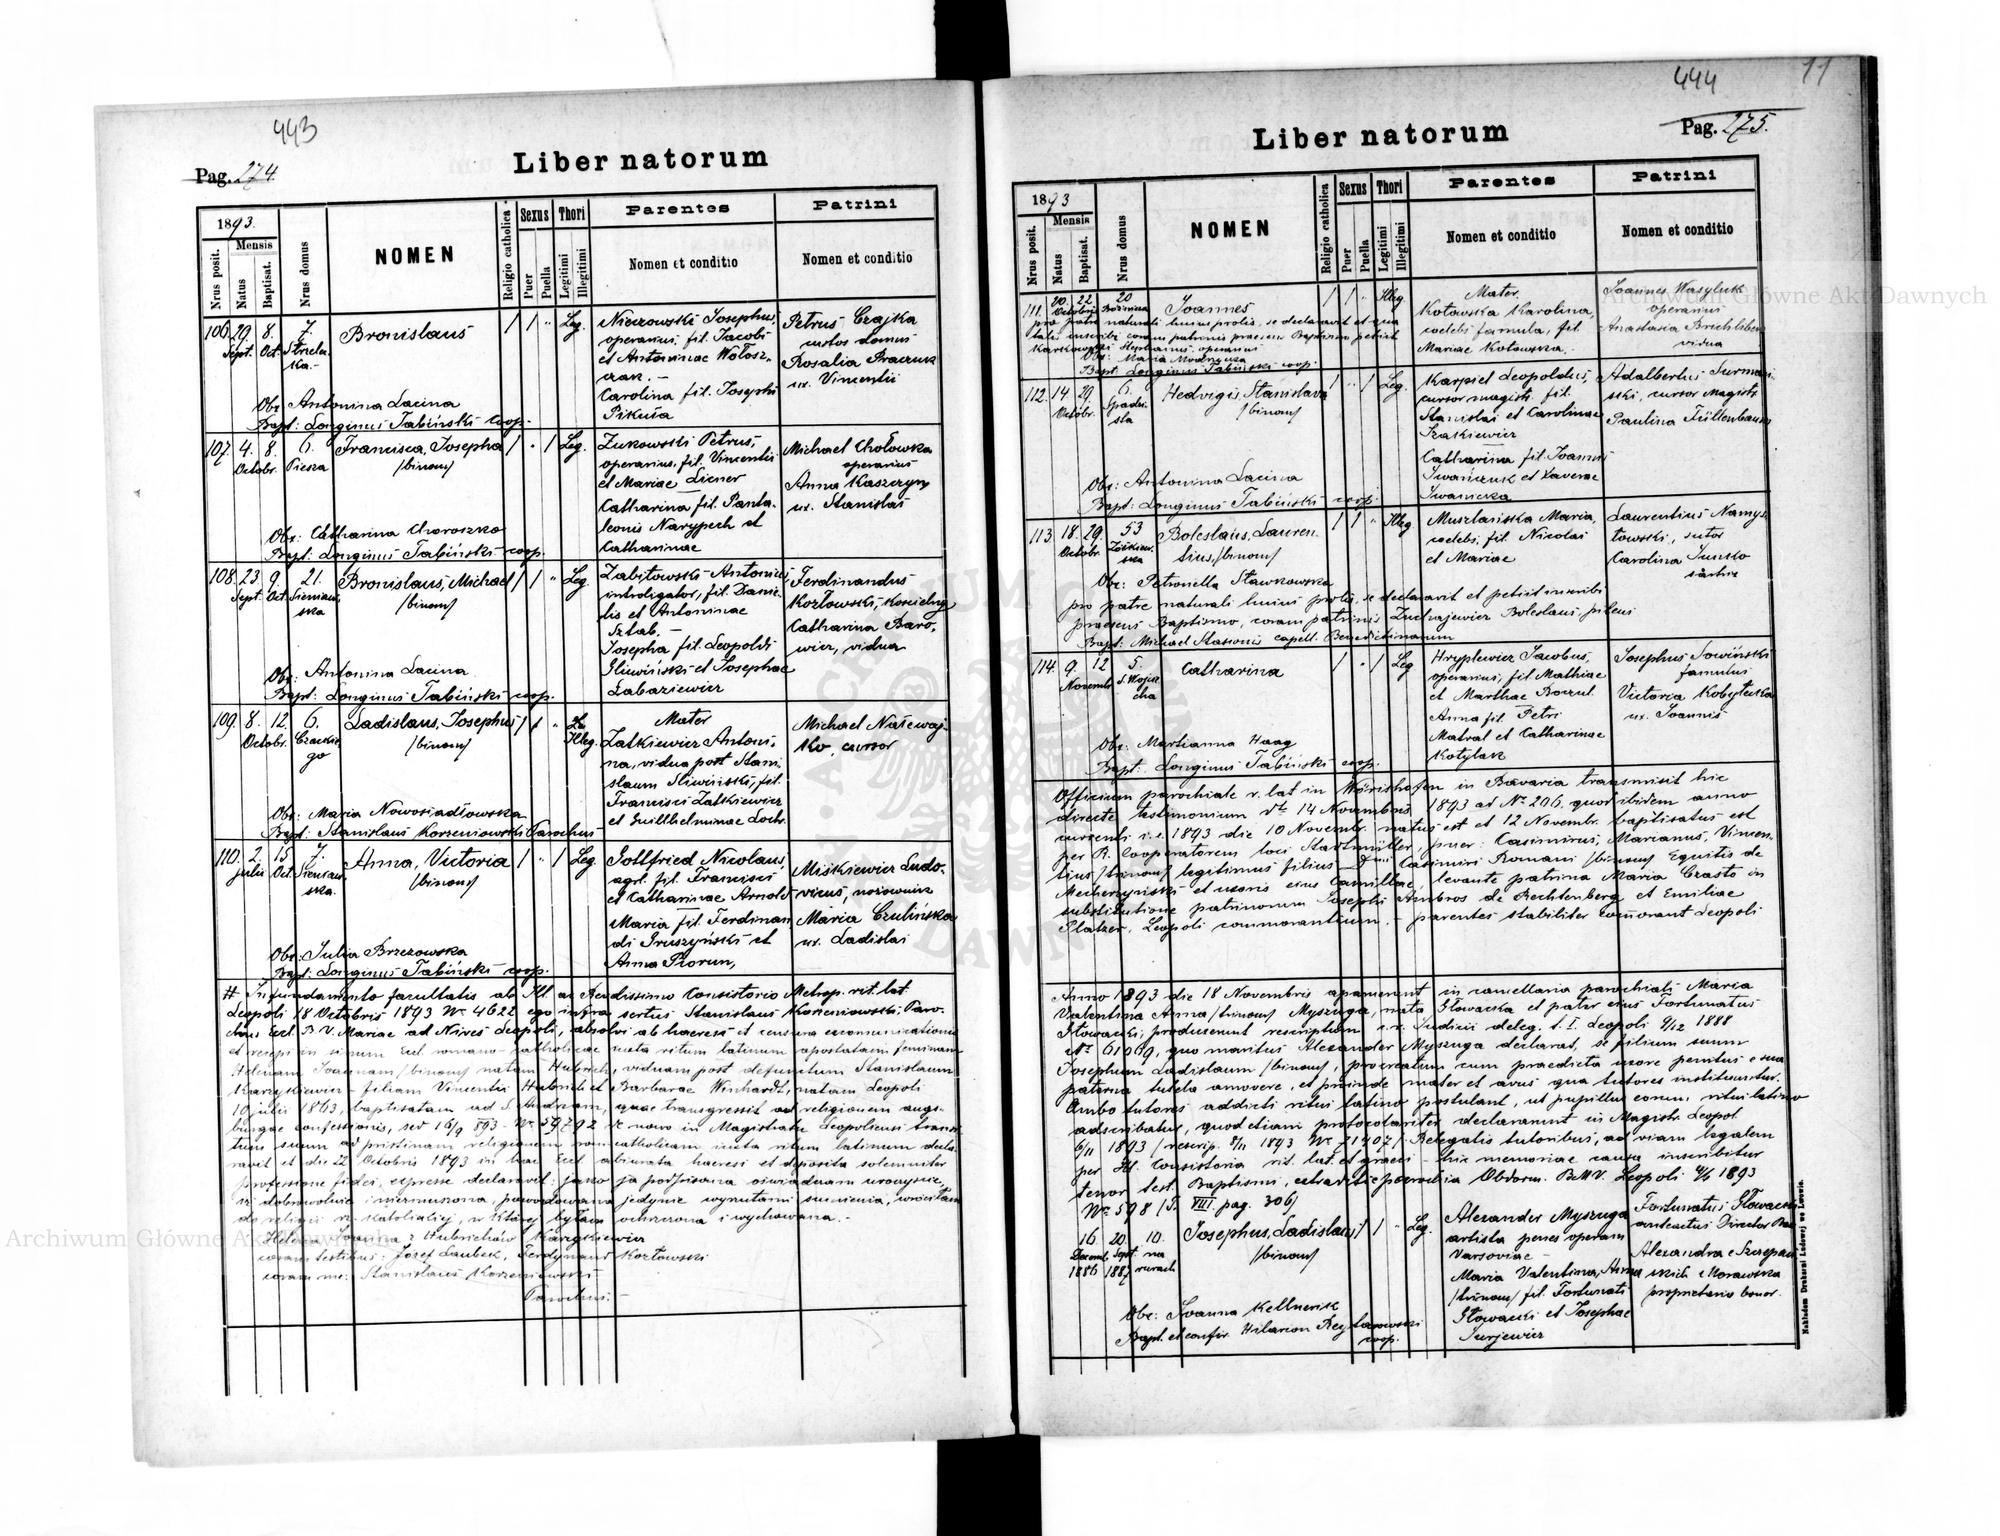 443
Pag. 274.
Liber natorum
1893.
Nrus posit.
Mensis
Natus
Baptisat.
Nrus domus
NOMEN
Religio catholica
Sexus
Puer
Puella
Thori
Legitimi
Illegitimi
Parentes
Nomen et conditio
Patrini
Nomen et conditio
106. 29. Sept. 8. Oct. 7. Strzelec-
ka.-
Bronislaus
/ / " Leg.
Nieczowski Josephus,
operarius, fil. Jacobi
et Antoninae Wołosz-
czak. -
Carolina fil. Josephi
Pikuła
Petrus Czajka
custos domus
Rosalia Braczuk
ux. Vincentii
Obs: Antonina Lacina
Bapt: Longinus Tabiński coop.
107. 4. Octobr. 8. 6. Piesza
Francisca, Josepha
/binom/
/ " / Leg.
Zukowski Petrus,
operarius, fil. Vincentii
et Mariae Licner
Catharina fil. Panta-
leonis Narypech et
Catharinae
Michael Chołowka
operarius
Anna Kaszczyn
ux. Stanislai
Obs: Catharina Choroszko
Bapt: Longinus Tabiński coop.
108. 23. Sept. 9. Oct. 21. Sieniaw-
ska
Bronislaus, Michael
/binom/
/ / " Leg.
Zabitowski Antonius,
introligator, fil. Danie-
lis et Antoninae
Sztab. -
Josepha fil. Leopoldi
Gliwiński et Josephae
Labaziewicz
Ferdinandus
Kozłowski, kościelny
Catharina Baro-
wicz, vidua
Obs: Antonina Lacina
Bapt: Longinus Tabiński coop.
109. 8. Octobr. 12. 6. Czackie-
go
Ladislaus, Josephus
/binom/
/ / " Illeg.
Mater
Zatkiewicz Antoni-
na, vidua post Stani-
slaum Sliwiński, fil.
Francisci Zatkiewicz
et Guilhelminae Lochr.
Michael Nalewaj-
ko, cursor
Obs: Maria Nowosiadłowska
Bapt: Stanislaus Korzeniowski Parochus
110. 2. julii 15. Oct. 7. Sieniaw-
ska.
Anna, Victoria
/binom/
/ " / Leg.
Gottfried Nicolaus,
agr. fil. Francisci
et Catharinae Arnold
Maria fil. Ferdinan-
di Gruszyński et
Anna Piorun,
Miśkiewicz Ludo-
vicus, nożownik
Maria Czulińska
ux. Ladislai
Obs: Julia Brzezowska
Bapt: Longinus Tabiński coop.
# In fundamento facultatis ab Ill. ac Rendissimo Consistorio Metrop. rit. lat.
Leopoli 18 Octobris 1893 Nr. 4622 ego infra sertus Stanislaus Korzeniowski, Paro-
chus Eccl. B. V. Mariae ad Nives Leopoli, absolvi ab haeresi et censura excomunicationis
et recepi in sinum Eccl. romano-catholicae iuxta ritum latinum apostatam feminam
Helenam Joannam /binom/ natam Hubrich, viduam post defunctum Stanislaum
Karzykiewicz - filiam Vincentii Hubrich et Barbarae Winhardt, natam Leopoli
10 julii 1863, baptisatam ad S. Andream, quae transgressit ad religionem augs-
burgae confessionis, sed 16/9 893 - Nr. 59792 de novo in Magistratu Leopoliensi transi-
tum suum ad pristinam religionem rom catholicam iuxta ritum latinum decla-
ravit et die 22 Octobris 1893 in hac Eccl. abiurata haeresi et deposita solemniter
professione fidei, expresse declaravit: jako ja podpisana oświadczam uroczyście,
iż dobrowolnie i nieprzymuszona, powodowana jedynie wyrzutami sumienia, wróciłam
do religii rz. katolickiej, w której byłam ochrzczona i wychowana. -
Helena Joanna z Hubrichów Karzykiewicz
coram testibus: Józef Laubek, Ferdynand Kozłowski
coram me: Stanislaus Korzeniowski
Parochus. -
444
11
Pag. 275.
Liber natorum
1893
Nrus posit.
Mensis
Natus
Baptisat.
Nrus domus
NOMEN
Religio catholica
Sexus
Puer
Puella
Thori
Legitimi
Illegitimi
Parentes
Nomen et conditio
Patrini
Nomen et conditio
111. 20. Octobris 22 20
Joannes
/ / " Illeg
Mater.
Kotowska Karolina,
coelebs famula, fil.
Mariae Kotowska.
Joannes Wasyluk
operarius
Anastasia Brichliber
vidua
pro patre naturali huius prolis, se declaravit et qua
talis inscribi coram patrinis praesens Baptismo petiit
Karkowski Stephanus, operarius
Obs: Maria Modrycka
Bapt: Longinus Tabiński coop.
112. 14. Octobr. 29. 6. Grodec-
sta
Hedvigis, Stanislava
/binom/
/ " / Leg.
Karpiel Leopoldus,
cursor magistr. fil.
Stanislai et Carolinae
Szakiewicz
Catharina fil. Joannis
Iwańczuk et Xaverae
Iwanicka
Adalbertus Surma-
ski, cursor Magistr.
Paulina Füllenbaum
Obs: Antonina Lacina
Bapt: Longinus Tabiński coop.
113. 18. Octobr. 29. 53 Zółkiew-
ska
Boleslaus, Lauren-
tius, /binom/
/ / " Illeg
Musztańska Maria,
coelebs, fil. Nicolai
et Mariae
Laurentius Namys-
łowski, sutor
Carolina Junsko
Obs: Petronella Sławkowska
pro patre naturali huius prolis, se declaravit et petiit inscribi
praesens Baptismo, coram patrinis Zuchajewicz Boleslaus, pileus
Bapt: Michael Stasionis capell. Benedictinarum
114. 9. Novembr 12 5. S. Wojcie-
cha
Catharina
/ " / Leg
Hryplewicz Jacobus,
operarius, fil Mathiae
et Marthae Boczul.
Anna fil. Petri
Matral et Catharinae
Kotylak
Josephus Sowiński
famulus
Victoria Kobylecka
ux. Joannis
Obs: Martianna Haag
Bapt: Longinus Tabiński coop.
Officium parochiale r. lat in Wörishofen in Bavaria transmisit hic
directe testimonium dto 14 Novembris 1893 ad Nr. 206. quod ibidem anno
currenti i.e. 1893 die 10 Novembr. natus est et 12 Novembr. baptisatus est
per R. Cooperatorem loci Stadtmüller, puer: Casimirus, Marianus, Vincen-
tius /trinom/ legitimus filius Dmi Casimiri Romani /binom/ Equitis de
Mecherzyński et uxoris eius Camillae, levante patrina Maria Crasto in
substitutione patrinorum Josephi Ambros de Rechtenberg et Emiliae
Platzer, Leopoli commorantium. - parentes stabiliter comorant Leopoli
Anno 1893 die 18 Novembris aparuerunt in cancellaria parochiali Maria
Valentina Anna /trinom/ Myszuga, nata Głowacka et pater eius Fortunatus
Głowacki; produxerunt rescriptum c.r. Judicii deleg. S. I. Leopoli 9/12 1888
Nr 61069, quo maritus Alexander Myszuga declarat, se filium suum
Josephum Ladislaum /binom/, procreatum cum praedicta uxore penitus e sua
paterna tutela amovere, et proinde mater et avus qua tutores instituuntur.
Ambo tutores addicti ritui latino postulant, ut pupillus eorum ritui latino
adscribatur, quod etiam protocolariter declararunt in Magistr. Leopol
6/11 1893 /rescrip. 8/11 1893 Nr 71407/. Relegatis tutoribus, ad viam legalem
per Ill. Consistoria rit. lat. et graeci - hic memoriae causa inscribitur
tenor test. Baptismi, extraditi parochia Obdorm. B.M.V. Leopoli 4/8 1893
Nr 598 /T. VIII. pag. 306/
16 Decemb. 1886 20 Sept. 1887 10. na
rurach
Josephus, Ladislaus
/binom/
/ / " Leg.
Alexander Myszuga
artista penes operam
Varsoviae -
Maria Valentina, Anna
/trinom/ fil. Fortunati
Głowacki et Josephae
Jurjewicz
Fortunatus Głowacki
anteactus Director
Alexandra e Szczepań-
skich Morawska
proprietaria bonor.
Obs: Joanna Kellnerik
Bapt. et confir Hilarion Reylarowski
coop.
Nakładem Drukarni Ludowej we Lwowie.
Archiwum Główne Akt Dawnych
Archiwum Główne Akt Dawnych
ARCHIWUM GŁÓWNE AKT DAWNYCH